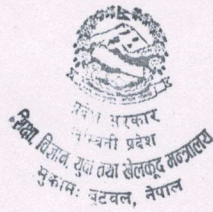 प्रदेश सरकार
लुम्बिनी प्रदेश
शिक्षा विज्ञान, युवा तथा खेलकुद मन्त्रालय
मुकामः बुटवल, नेपाल